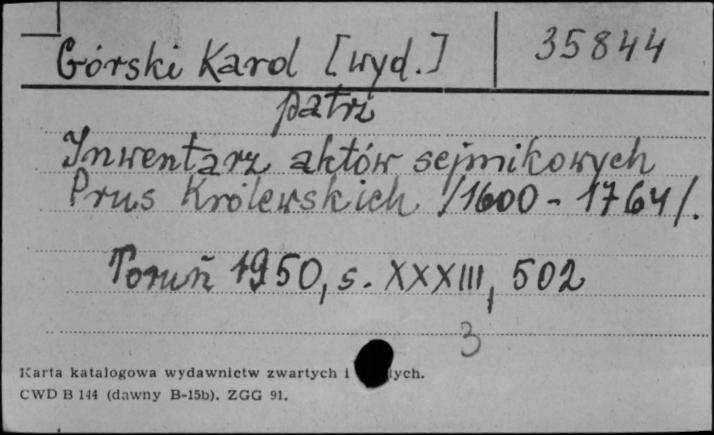 Górski Karol [wyd.] 35844
patrz
Inwentarz aktów sejmikowych
Prus Królewskich /1600-1764/.
Toruń 1950, s. XXXIII, 502
3
Karta katalogowa wydawnictw zwartych i
CWD B 144 (dawny B-15b). ZGG 91.